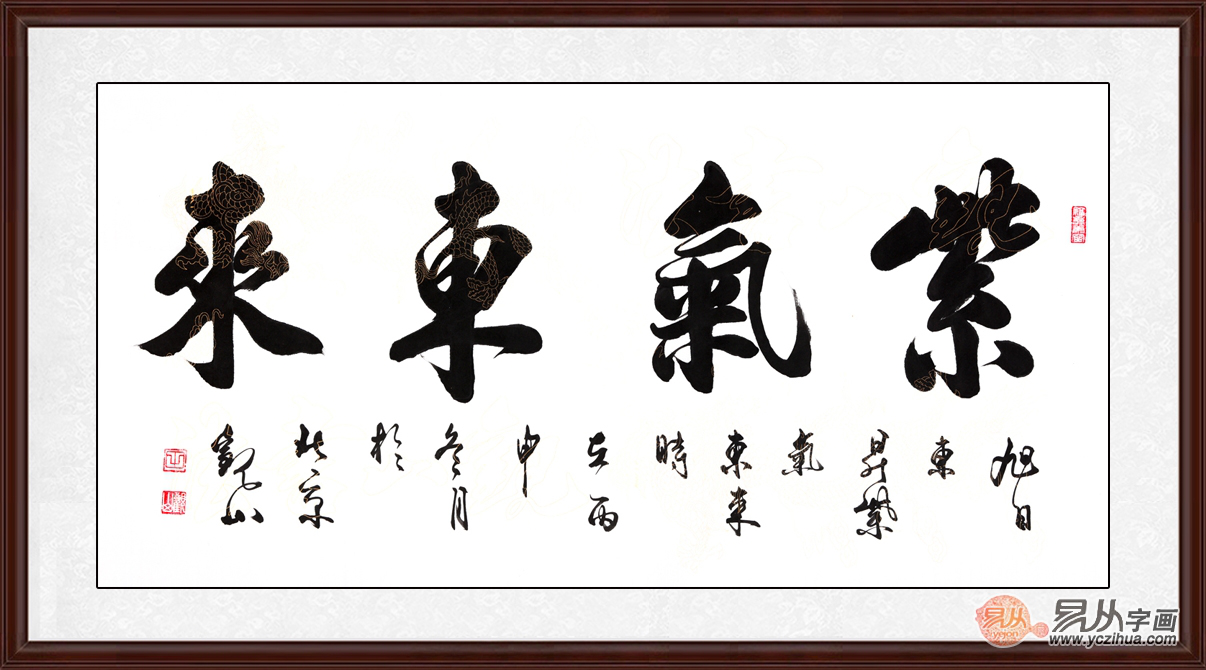 紫氣東來
旭日
東
昇紫
氣
東来
時
在丙
申
冬月
於
北京
觀山
易从
yejon
易从字画
www.yczihua.com